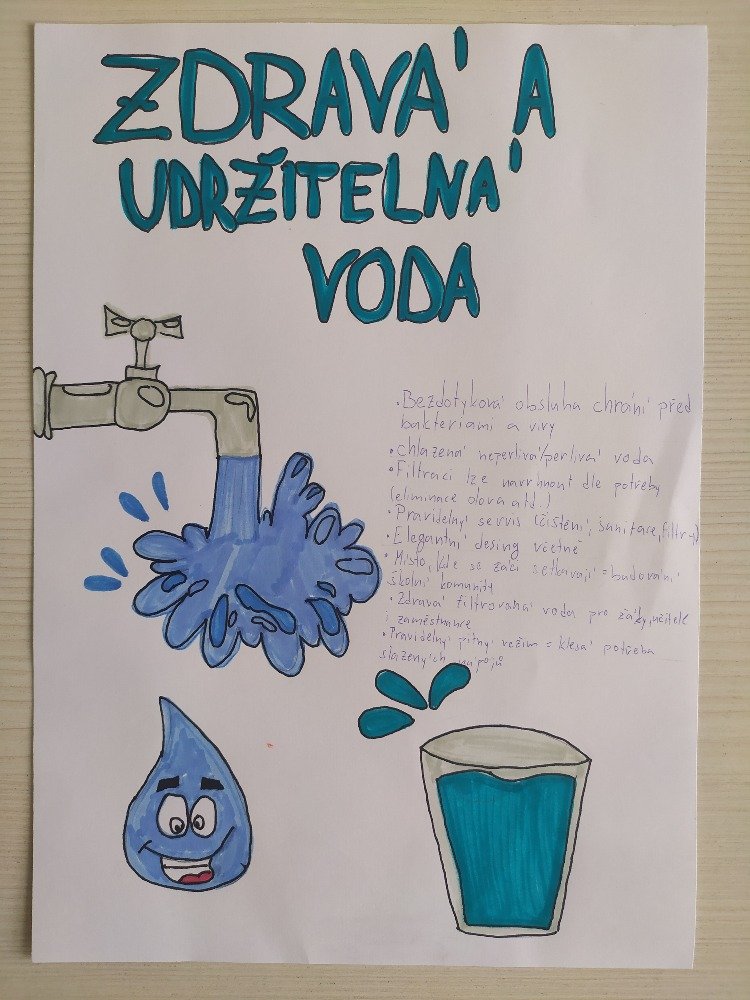 ZDRAVÁ A
UDRŽITELNÁ
VODA
• Bezdotyková obsluha chrání před
bakteriami a viry
• chlazená neperlivá/perlivá voda
• Filtraci lze navrhnout dle potřeby
(eliminace olova atd.)
• Pravidelný servis (čistění, sanitace, filtr
• Elegantní desing včetně
• Místo, kde se žáci setkávají = budování
školní komunity
• Zdravá filtrovaná voda pro žáky, učitele
i zaměstnance
• Pravidelný pitný režim = klesá potřeba
slazených nápojů